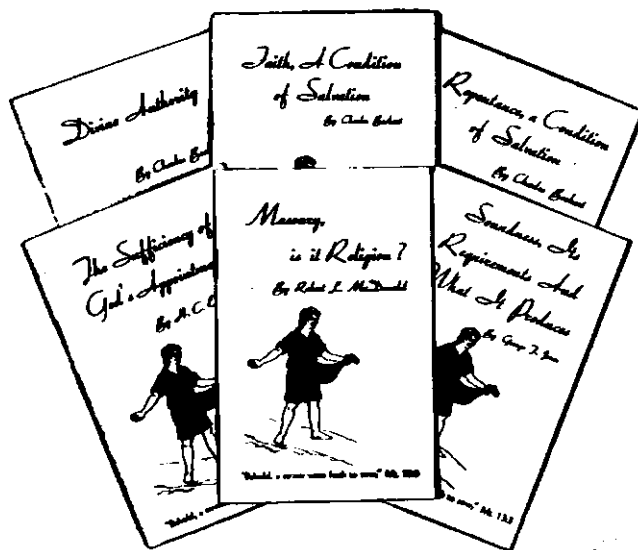 Divine Authority
By Charles
Faith, A Condition
of Salvation
By Charles
Repentance, a Condition
of Salvation
By Charles
The Sufficiency of
God's
By A. C.
Masonry,
is it Religion?
By Robert L. MacDonald
"Behold, a sower went forth to sow," Mt.
Soundness, Its
Requirements And
What It Produces
By George T. Jones
"Behold, a
to sow," Mt. 13:3